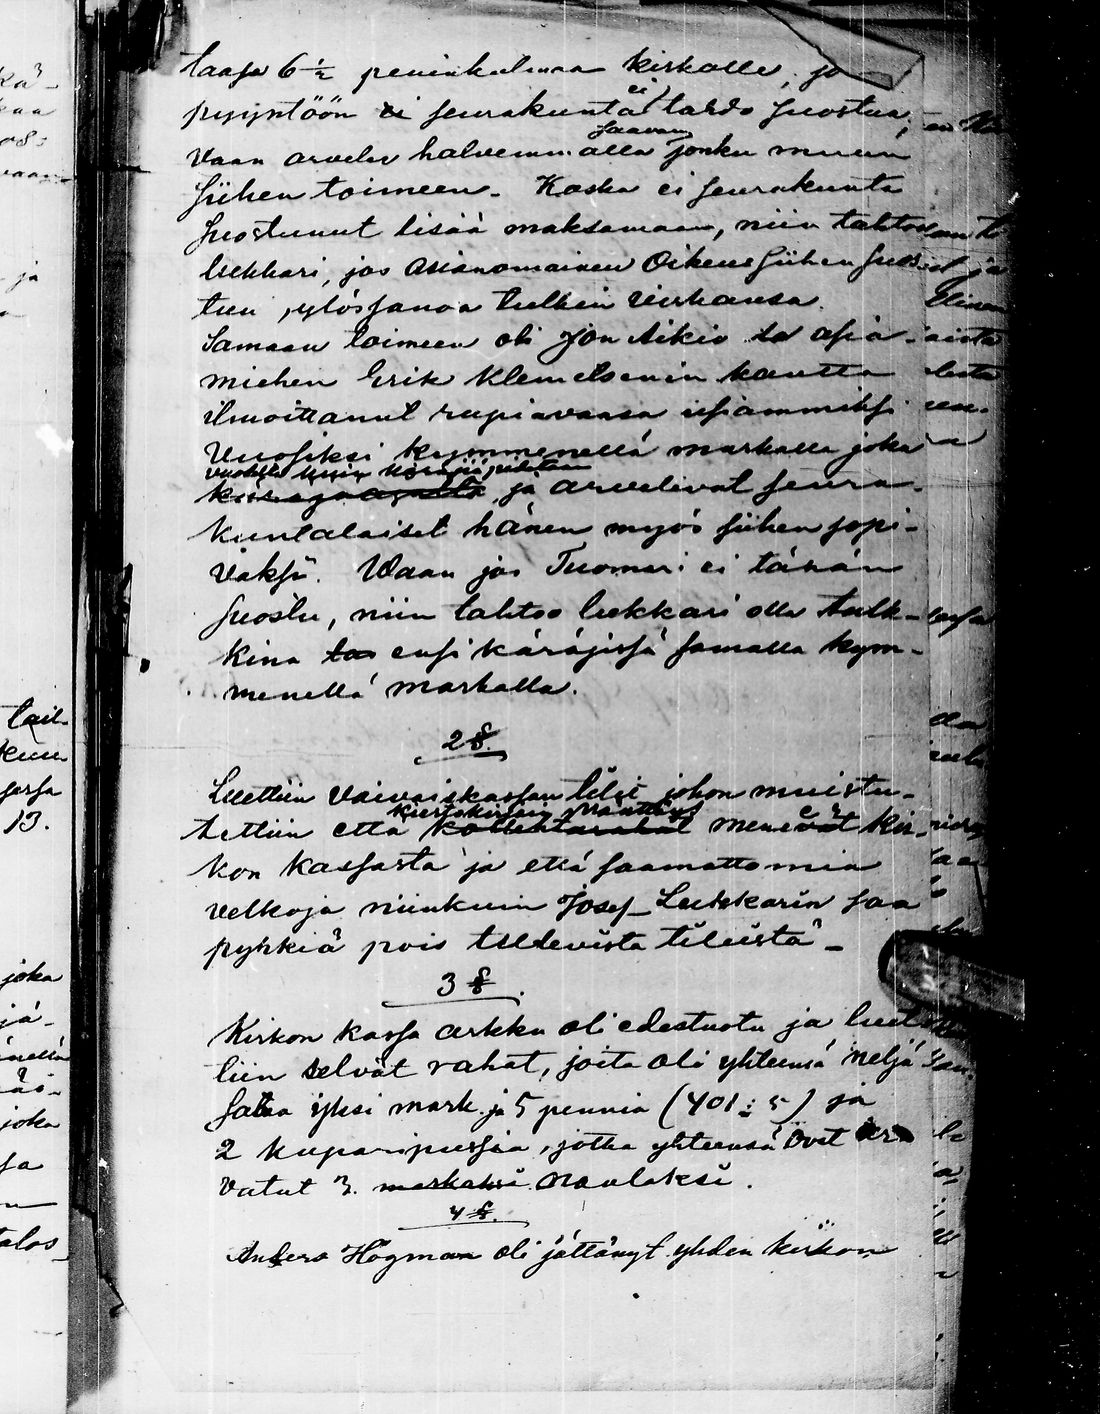 taasa 6 ½ peninkulmaa kirkolle, jo
pyyntöön ei seurakunta ei tahdo suostua,
Vaan arvelee halvemmalla saavan jonku muun
siihen toimeen. Koska ei seurakunta
suostunut lisää maksamaan, niin tahtoo
lukkari, jos asianomainen Oikeus siihen suos-
tuu, ylössanoa tulkin virkansa.
Samaan toimeen oli Jon Aikio asia-
miehen Erik Klemetsenin kautta
ilmoittanut rupiavansa
Vuosiksi kymmenellä markalla joka
vuodelta kuin käräjiä pidetään
ja arvelivat seura-
kuntalaiset hänen myös siihen sopi-
vaksi. Waan jos Tuomari ei tähän
suostu, niin tahtoo lukkari olla tulk-
kina ensi käräjissä samalla kym-
menellä markalla.
2 §.
Luettiin Vaivaiskassan tilit johon muistu-
tettiin että kiertokirjain menevät kir-
kon kassasta ja että saamattomia
velkoja niinkuin Josef Lukkarin saa
pyhkiä pois tulevista tileistä -
3 §.
Kirkon kassa arkku oli edestuotu ja luet-
tiin selvät rahat, joita oli yhteensä neljä
sataa yksi mark. ja 5 penniä (401 : 5) ja
2 kuparipussia, jotka yhteensä ovat ar-
vatut 3. markaksi naulaksi.
4 §.
Anders Högman oli jättänyt yhden kirkon